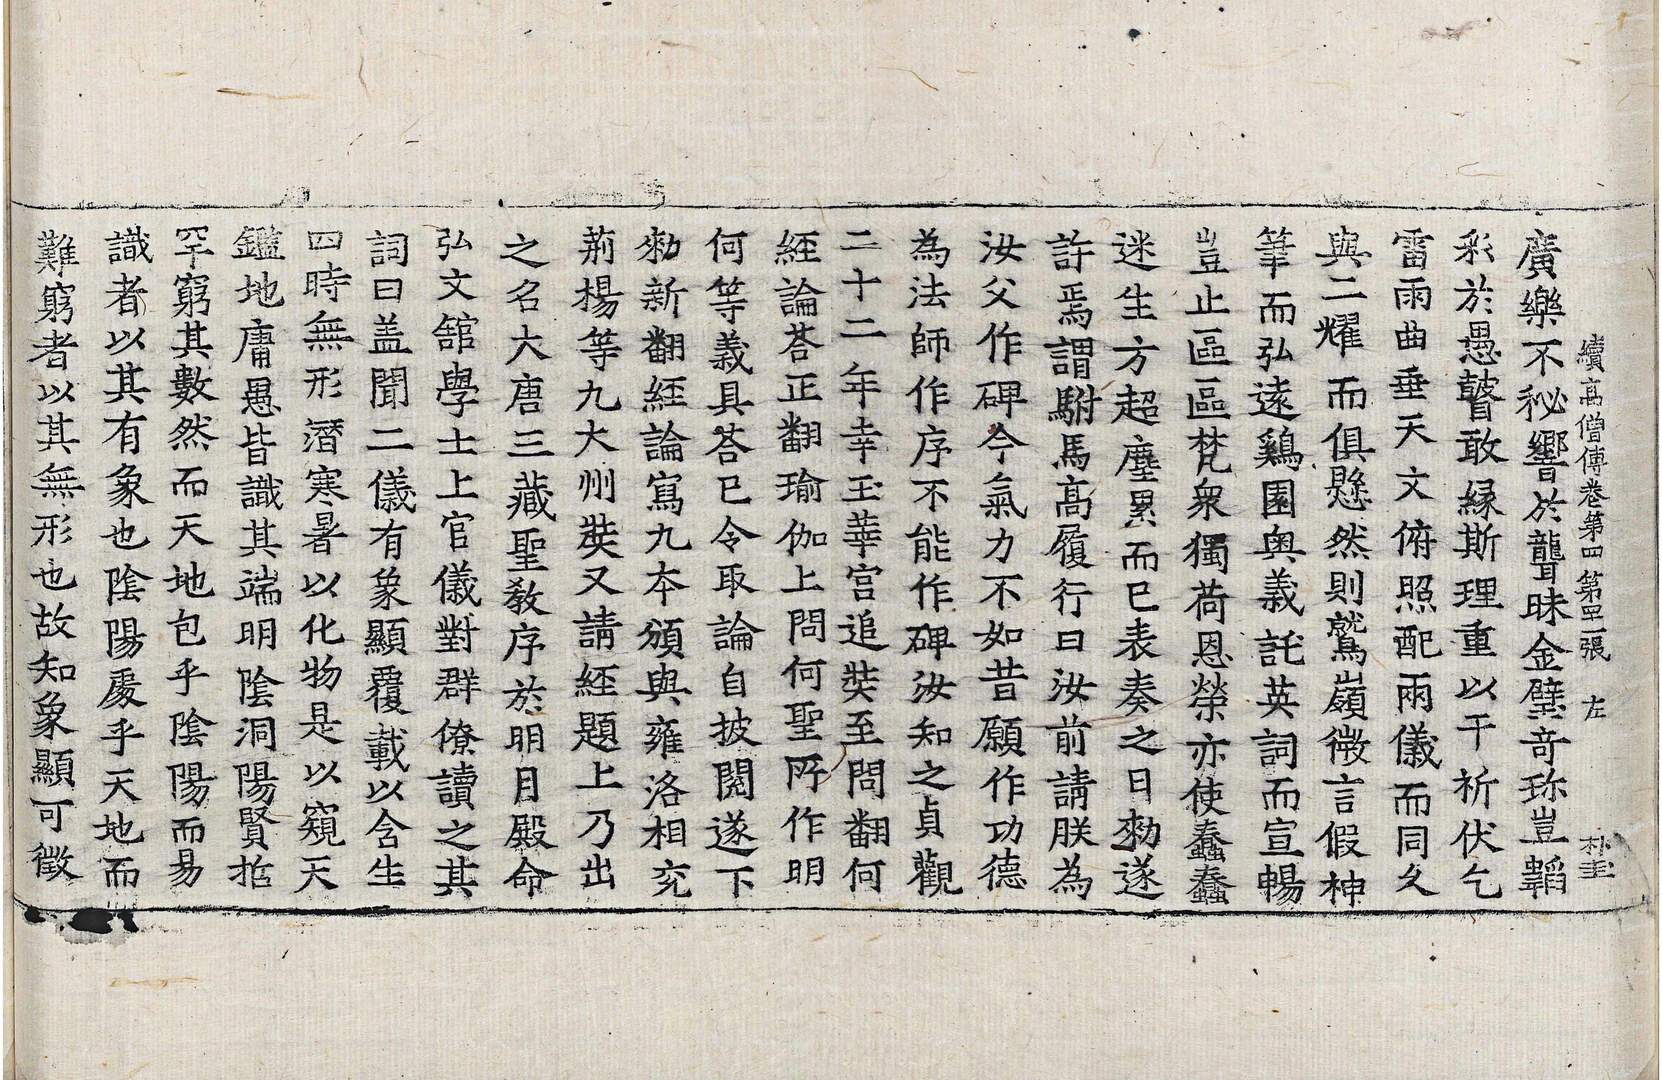 續高僧傳卷第四 第四十二張 左 朴圭
廣樂不秘響於聾昧金璧奇珎豈韜
彩於愚瞽敢緣斯理重以干祈伏乞
雷雨曲垂天文俯照配兩儀而同久
與二耀而俱懸然則鷲嶺微言假神
筆而弘遠鷄園奧義託英詞而宣暢
豈止區區梵衆獨荷恩榮亦使蠢蠢
迷生方超塵累而已表奏之日勑遂
許焉謂駙馬高履行曰汝前請朕為
汝父作碑今氣力不如昔願作功德
為法師作序不能作碑汝知之貞觀
二十二年幸玉華宮追奘至問翻何
經論荅正翻瑜伽上問何聖所作明
何等義具荅已令取論自披閱遂下
勑新翻經論寫九本頒與雍洛相兖
荊楊等九大州奘又請經題上乃出
之名大唐三藏聖教序於明月殿命
弘文舘學士上官儀對群僚讀之其
詞曰盖聞二儀有象顯覆載以含生
四時無形潛寒暑以化物是以窺天
鑑地庸愚皆識其端明陰洞陽賢哲
罕窮其數然而天地包乎陰陽而易
識者以其有象也陰陽處乎天地而
難窮者以其無形也故知象顯可徵